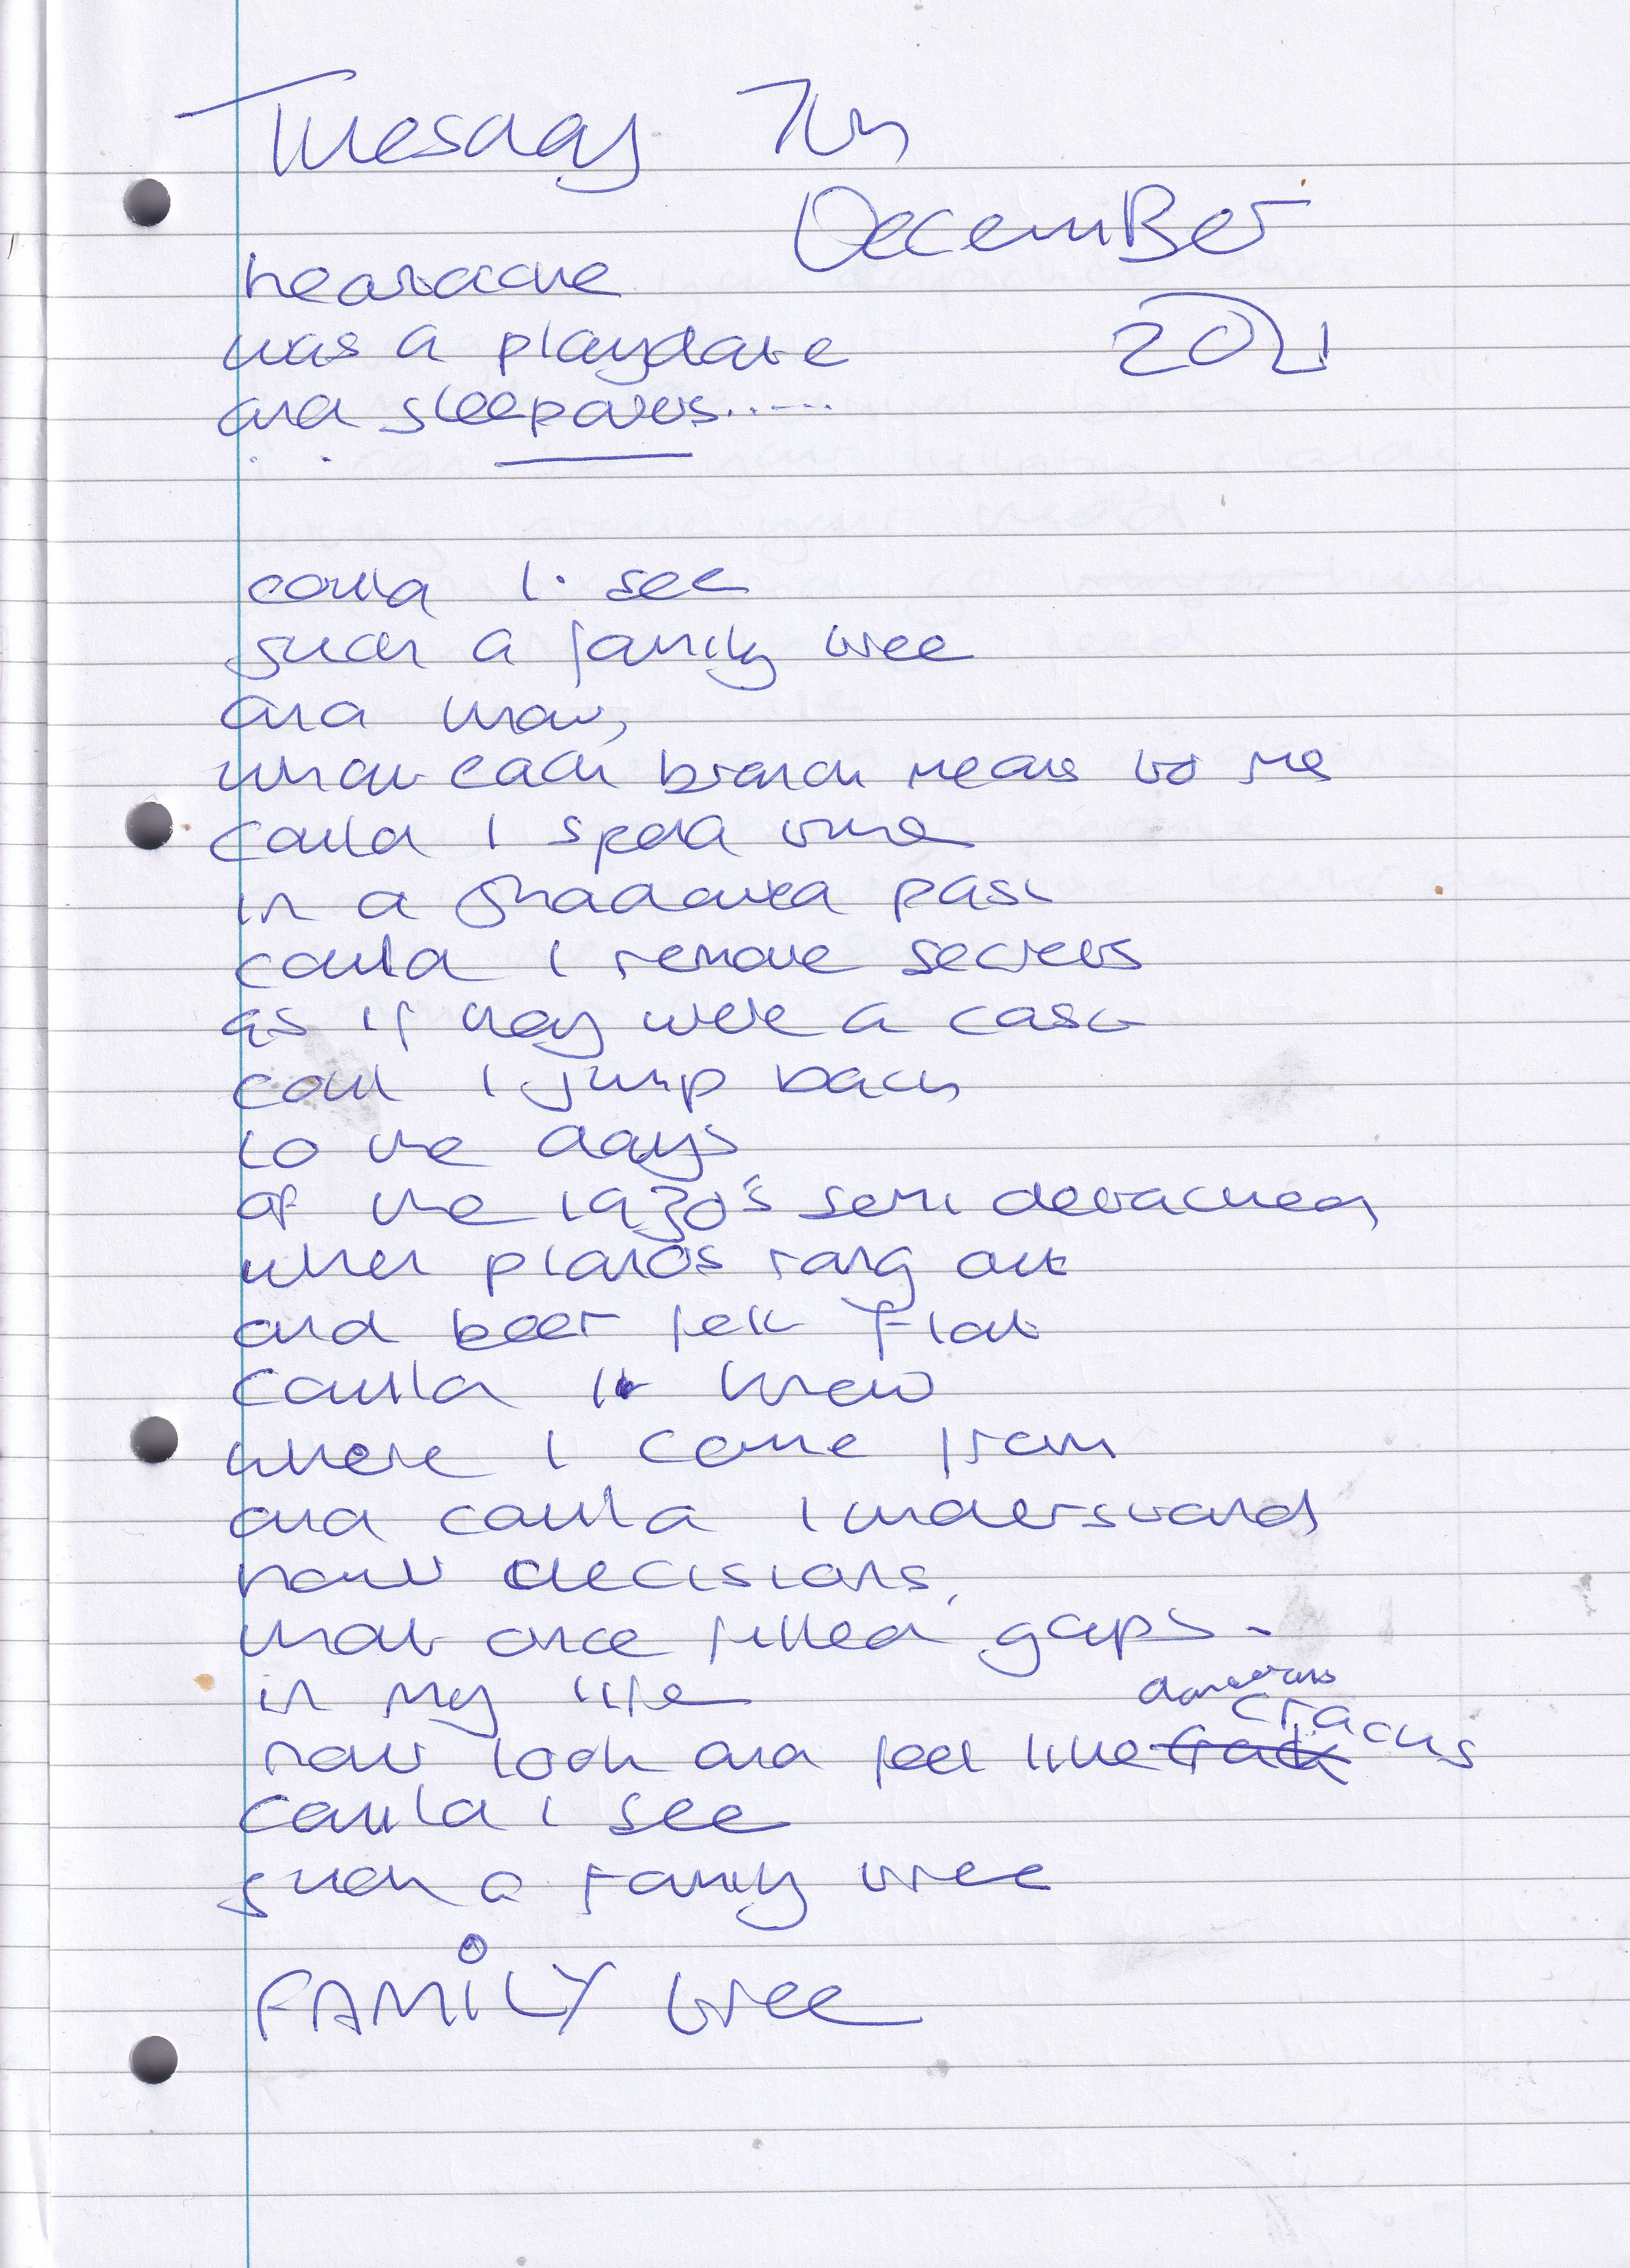 Tuesday 7th
December
2021
heartache
was a playdate
and sleepovers.....
could I see
such a family tree
and know,
what each branch means to me
could I spend time
in a shadowed past
could I remove secrets
as if they were a cast
coul I jump back
to the days
of the 1930's semi detached
when pianos rang out
and beer fell flat
could I know
where I come from
and could I understand
how decisions,
that once filled gaps -
in my life
dangerous
cracks
now look and feel like
could I see
such a family tree
FAMiLY tree